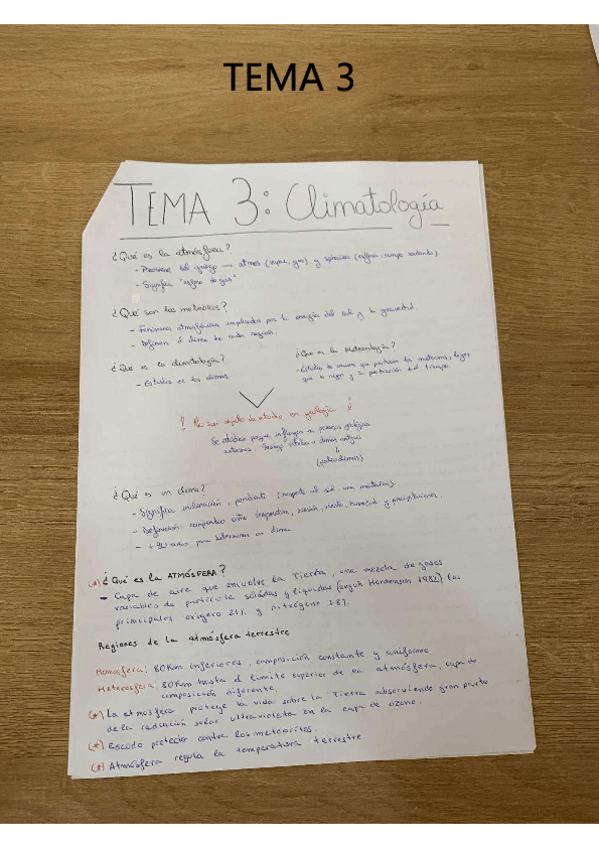 TEMA 3
TEMA 3: Climatología
¿Qué es la atmósfera?
- Proviene del griego — atmos (vapor, gas) y sphaira (esfera, cuerpo redondo)
- Significa "esfera de gas"
¿Qué son los meteoros?
- Fenómenos atmosféricos impulsados por la energía del sol y la gravedad.
- Definen el clima de cada región.
¿Qué es la climatología?
- Estudio de los climas
¿Que es la Meteorología?
- Estudia la ciencia que los meteoros, leyes
que lo rigen y la predicción del tiempo.
¡No son objeto de estudio en geología!
Se estudian porque influyen en procesos geológicos
externos.
(paleoclimas)
¿Qué es un clima?
- Significa inclinación, pendiente (respecto al sol
- Definición: temperatura, presión, viento, humedad y precipitaciones
- +30 años para un clima
(*) ¿Qué es la ATMÓSFERA?
- Capa de aire que envuelve la Tierra, una mezcla de gases
variables de partículas sólidas y líquidas (según Henderson 1982) los
principales oxígeno 21% y nitrógeno 78%.
Regiones de la atmósfera terrestre
Homosfera: 80Km inferiores, composición constante y uniforme
Heterosfera: 80Km hasta el límite superior de la atmósfera, capa de
composición diferente.
(*) La atmósfera protege la vida sobre la Tierra absorviendo gran parte
de la radiación solar ultravioleta en la capa de ozono.
(*) Escudo protector contra los meteoritos.
(*) Atmósfera regula la temperatura terrestre